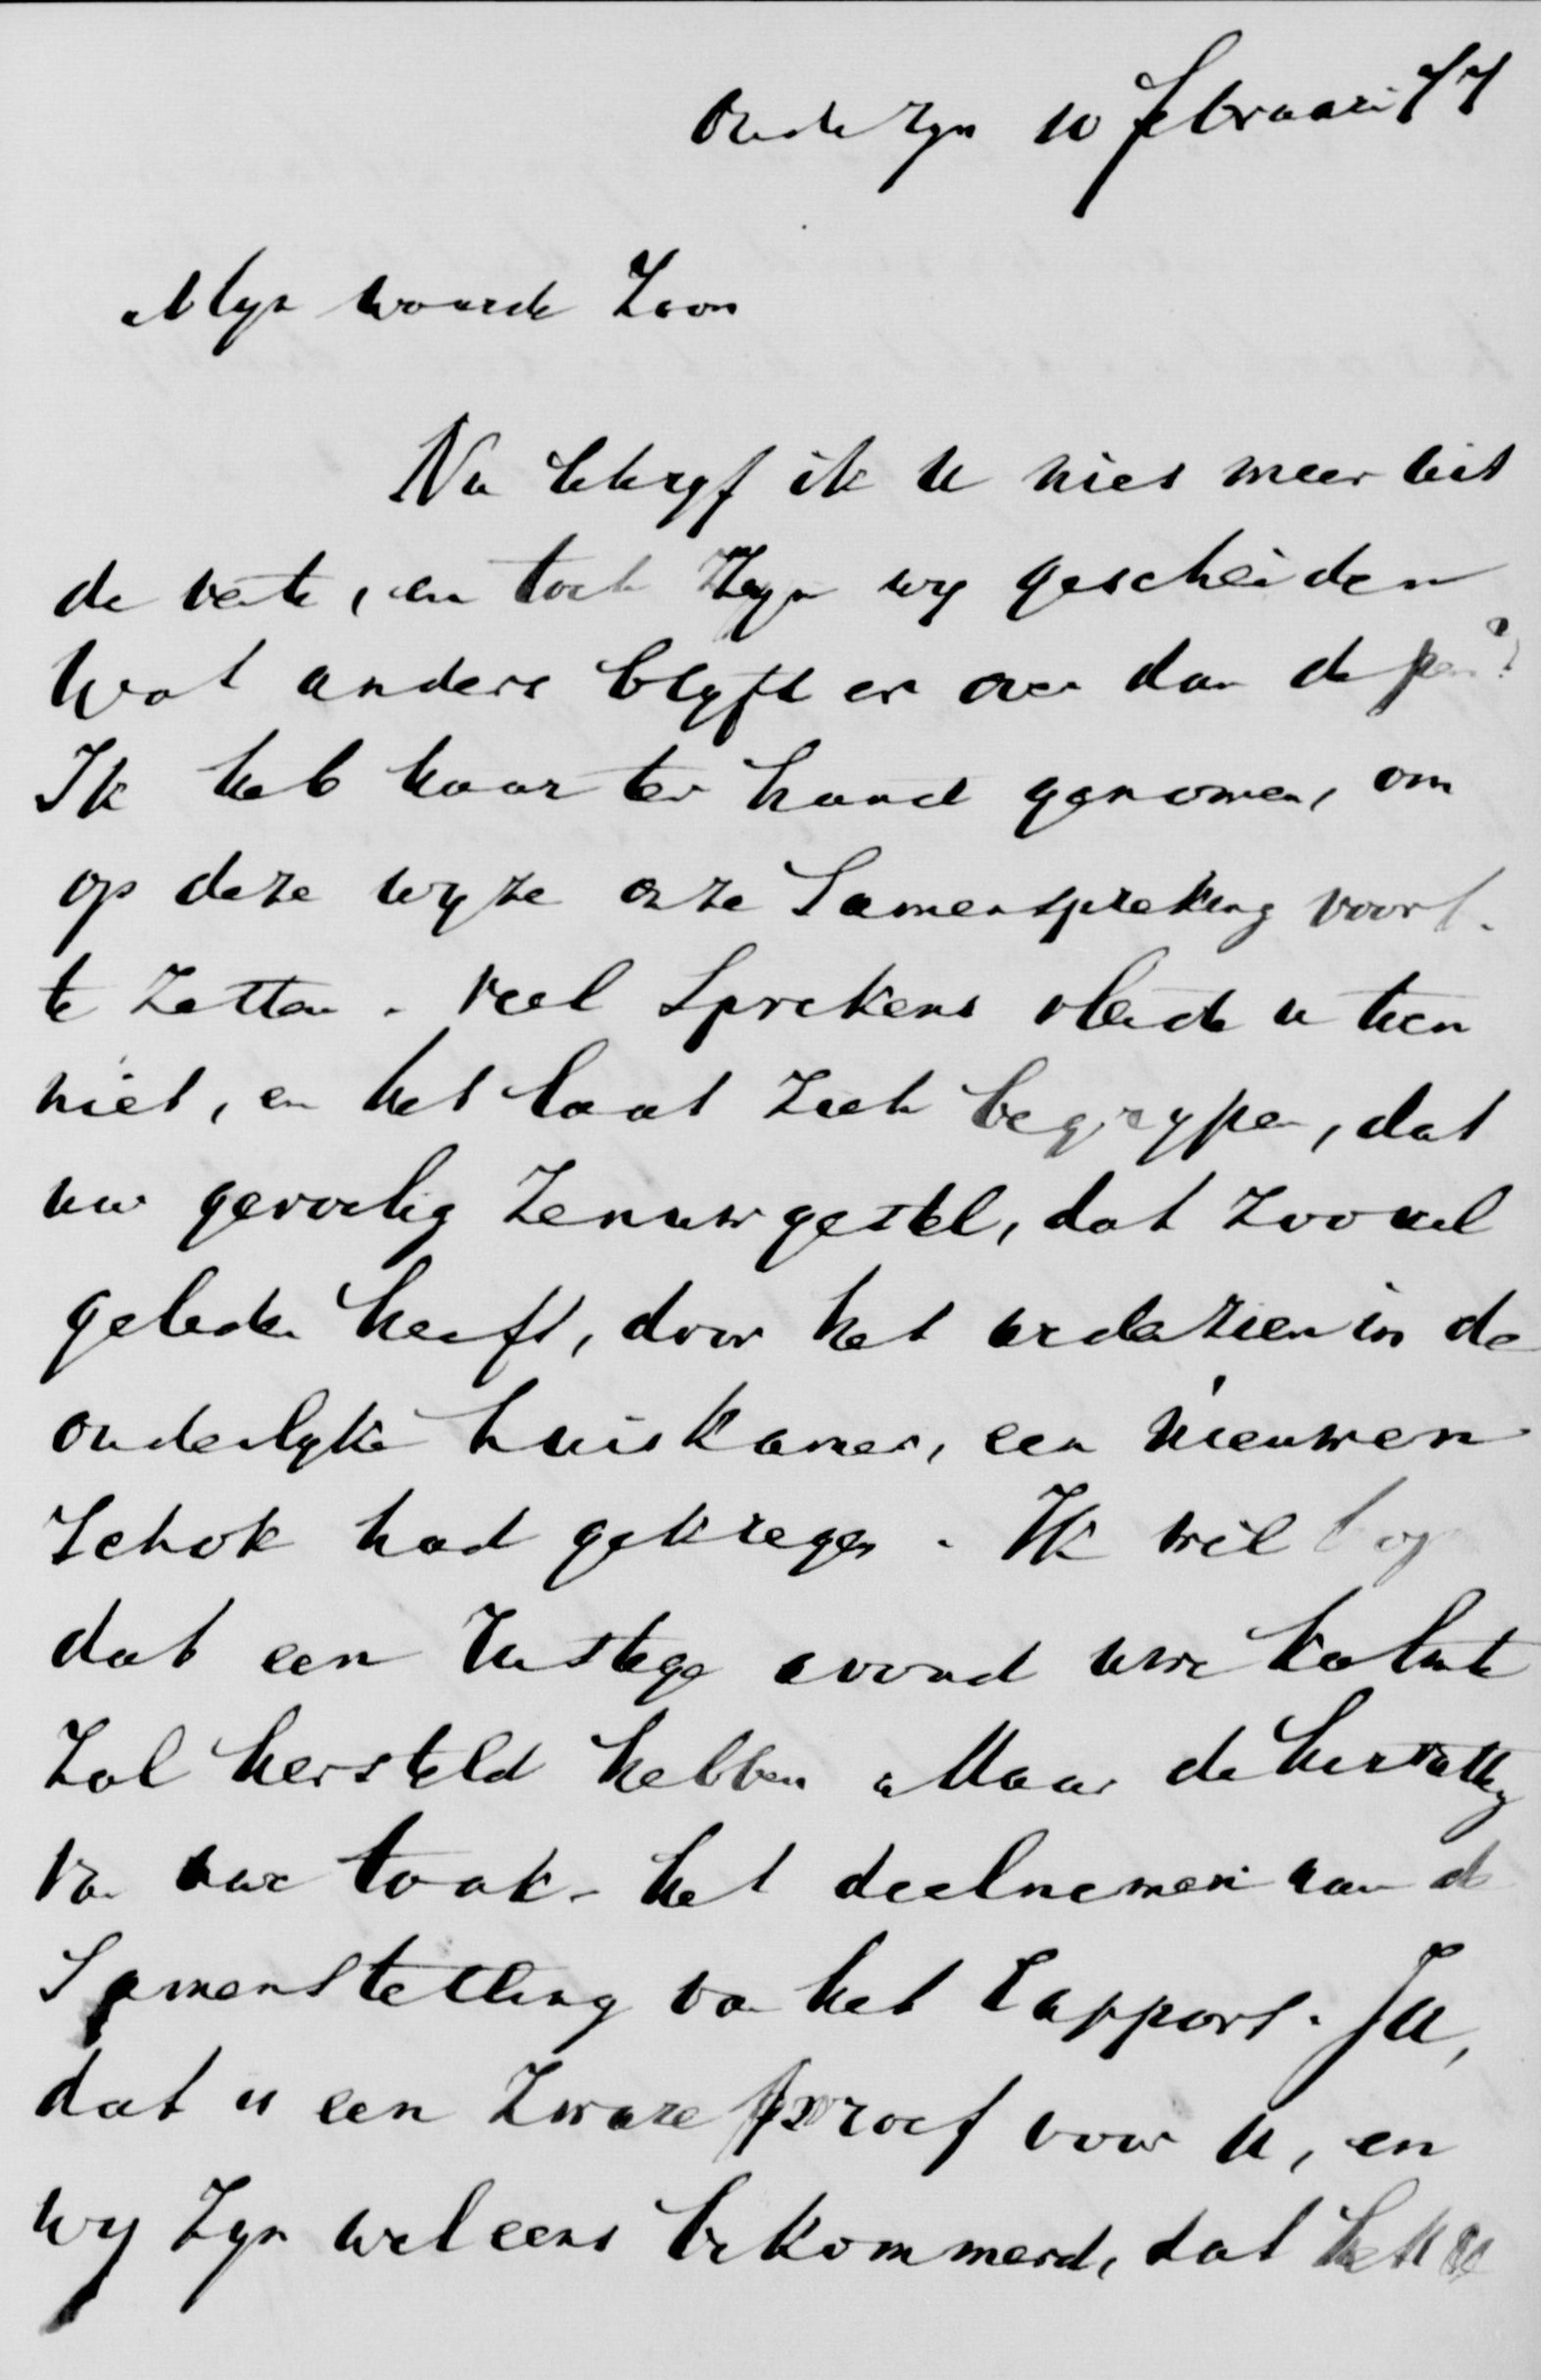 Oude Ryn 10 februari 77
Myn waarde Zoon
Nu schryf ik u niet meer uit
de verte, en toch zyn wy gescheiden
Wat anders blyft er over dan de pen?
Ik heb haar ter hand genomen, om
op deze wyze onze Samenspreking voort-
te zetten. Veel Sprekens vleide u toen
niet, en het laat zich begrypen, dat
uw gevoelig Zenuwgestel, dat zooveel
geleden heeft, door het wederzien in de
ouderlyke huiskamer, een nieuwen
Schok had gekregen. Ik wil
dat een rustige avond uwe kalmte
Zal hersteld hebben Maar de hervatting
van uwe taak - het deelnemen aan de
Samenstelling van het Rapport. Ja,
dat is een Zware proef voor u, en
wy Zyn wel eens bekommerd, dat het u